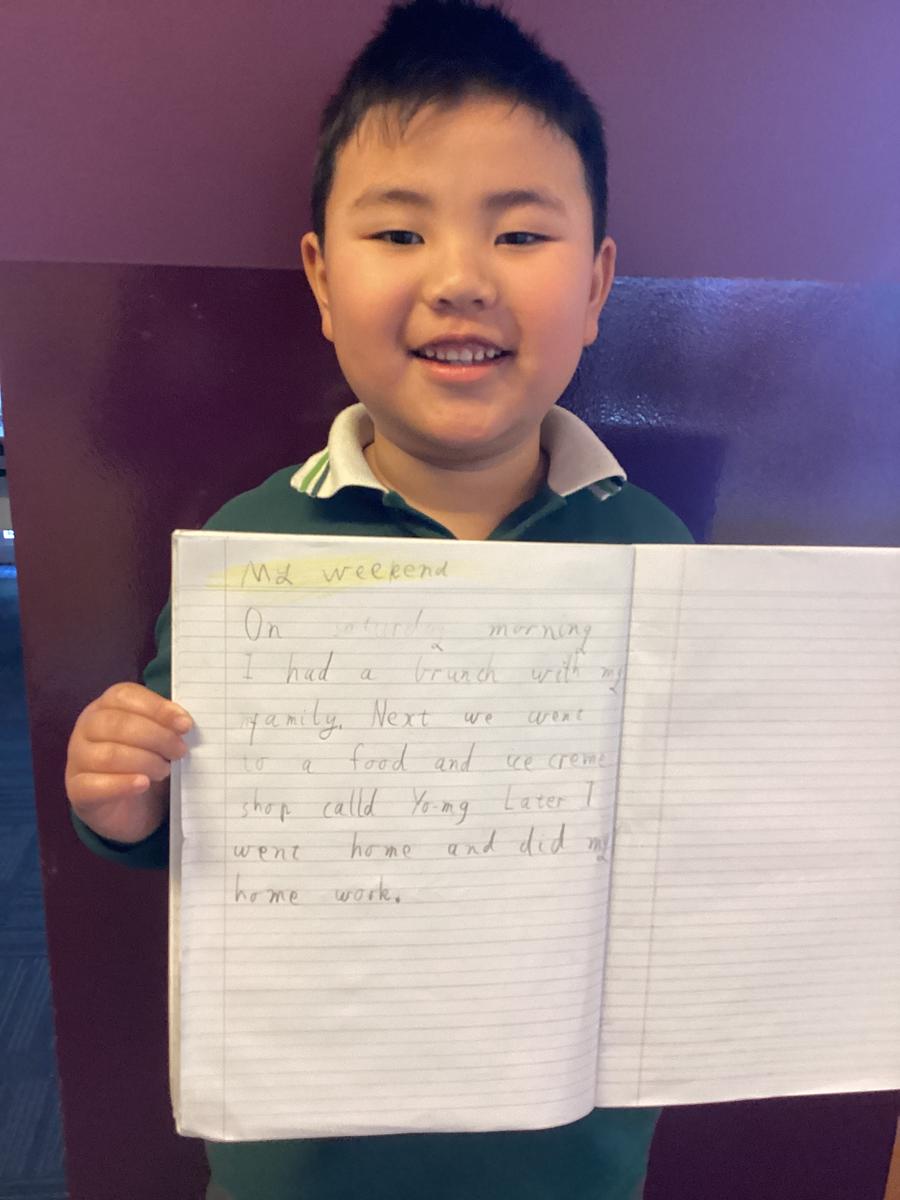 My weekend
On saturday morning
I had a brunch with my
family. Next we went
to a food and ice creme
shop calld Yo-mg Later I
went home and did my
home work.